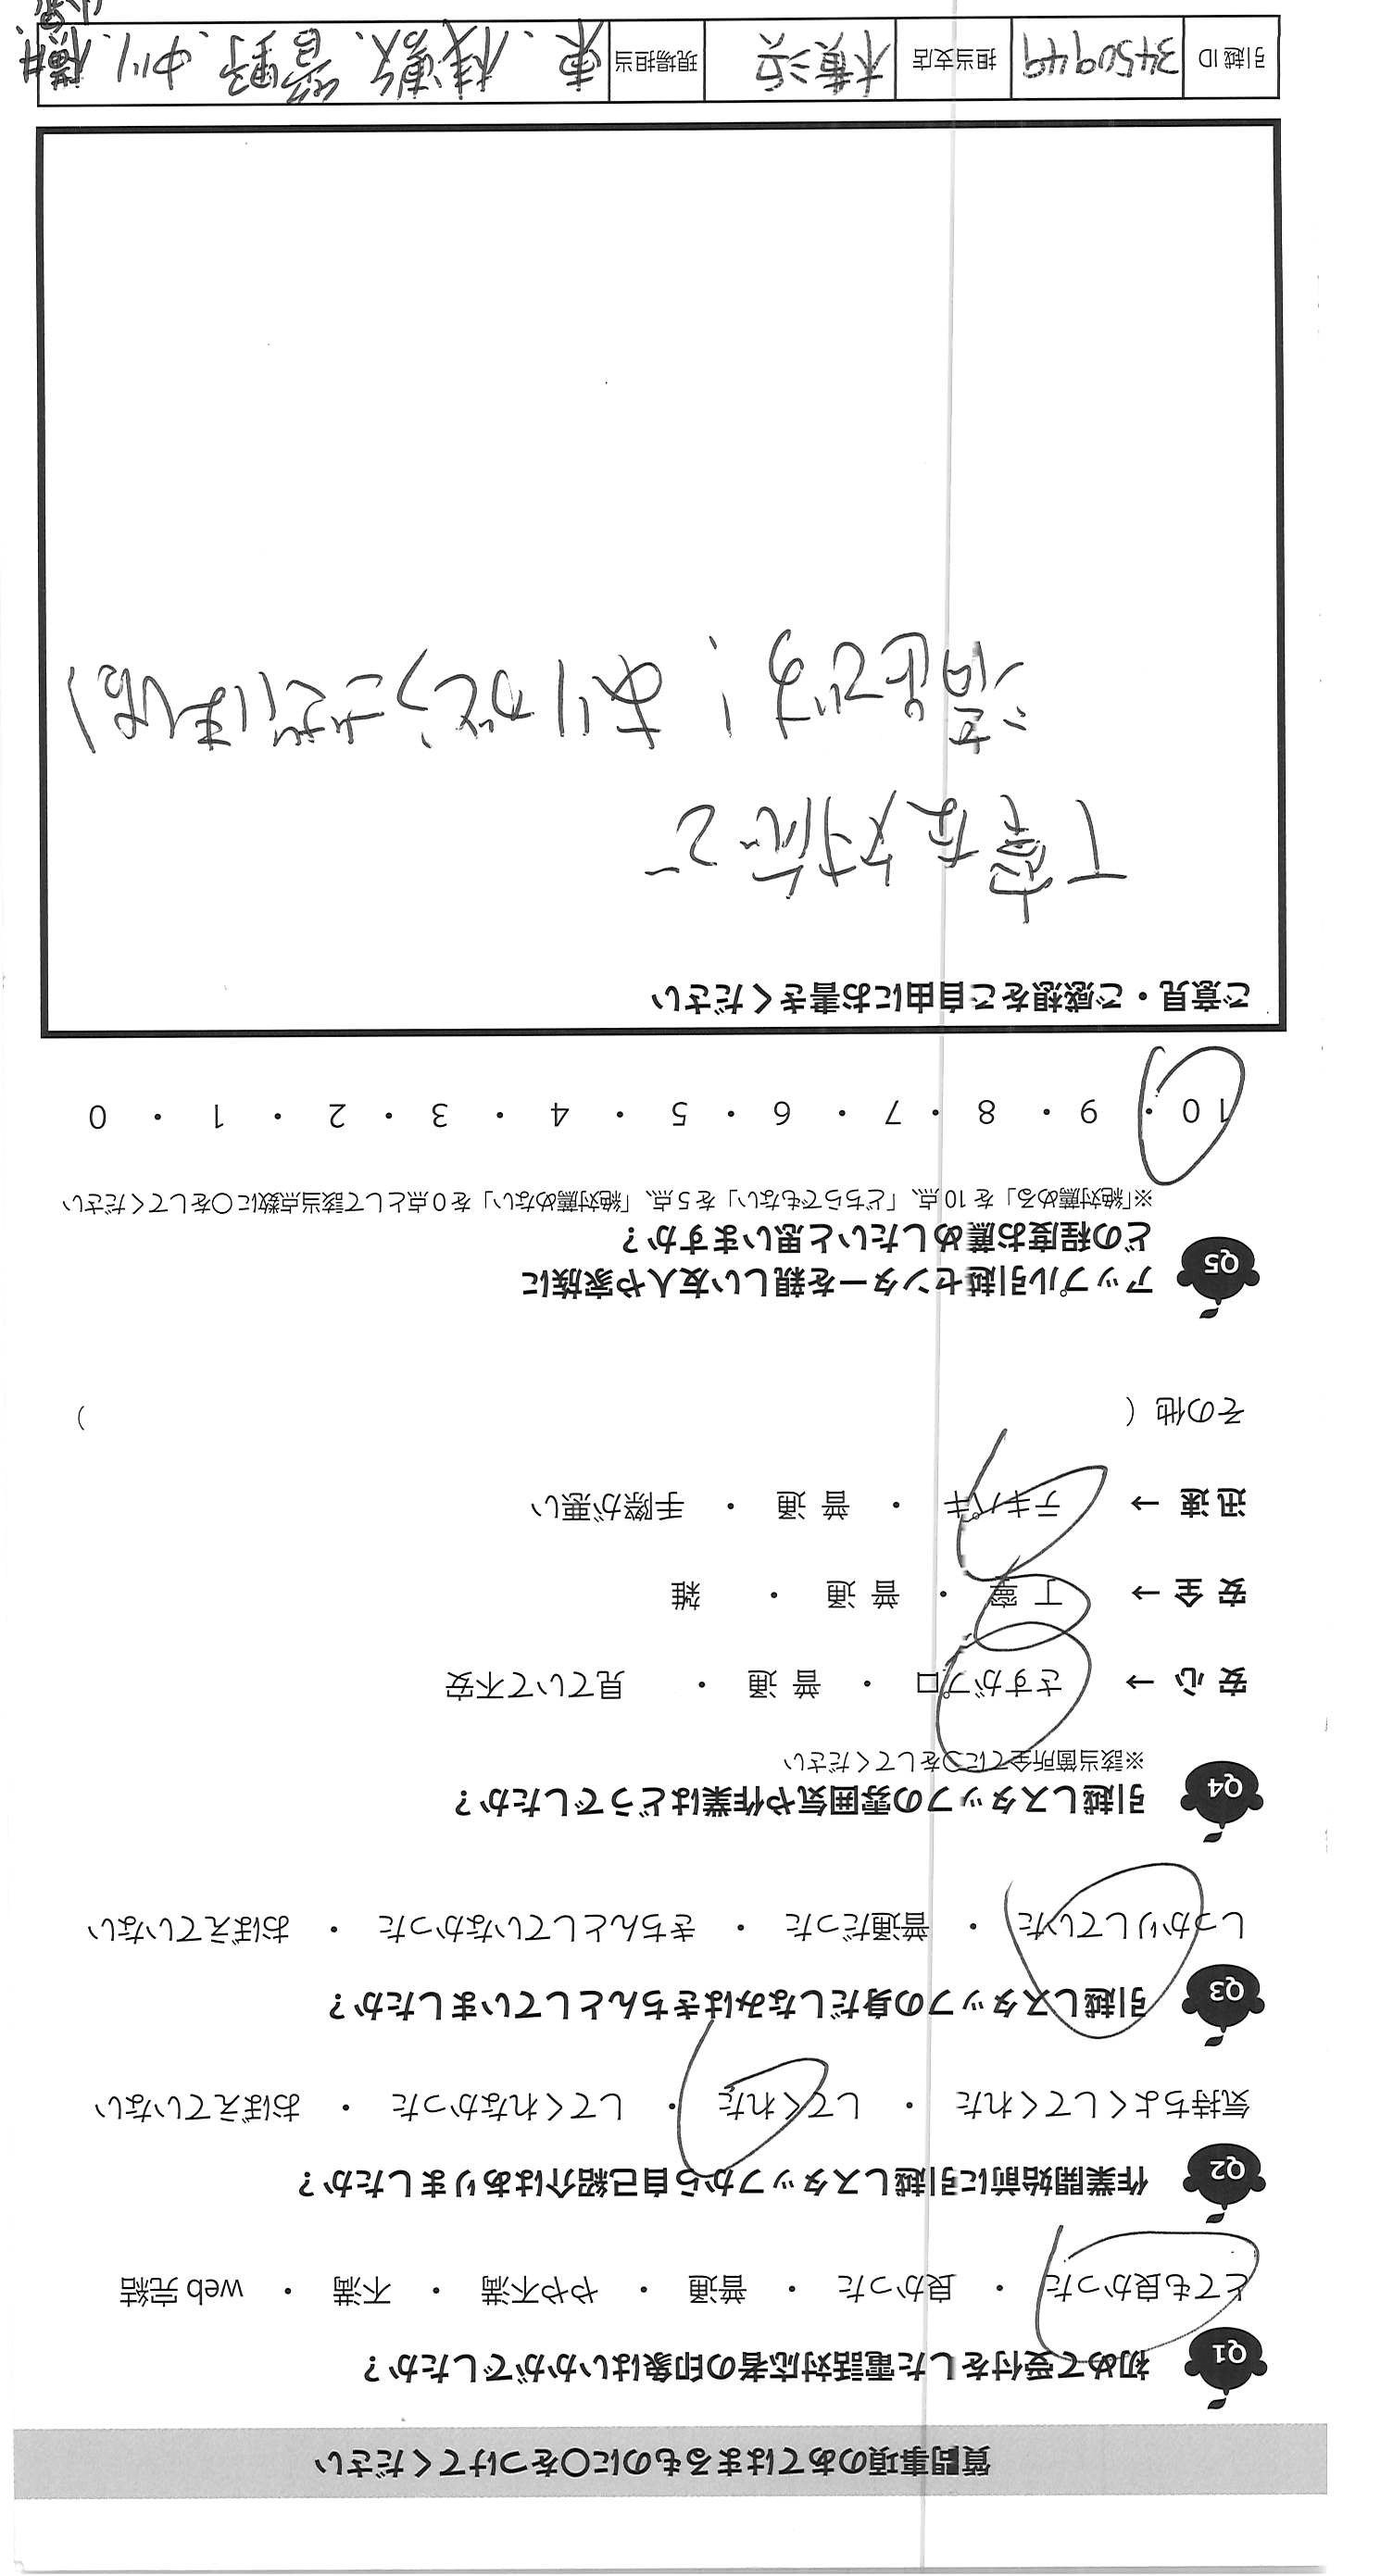 質問事項のあてはまるものに〇をつけてください
Q1 初めて受付をした電話対応者の印象はいかがでしたか？
とても良かった ・ 良かった ・ 普通 ・ やや不満 ・ 不満 ・ web 完結
Q2 作業開始前に引越しスタッフから自己紹介はありましたか？
気持ちよくしてくれた ・ してくれた ・ してくれなかった ・ おぼえていない
Q3 引越しスタッフの身だしなみはきちんとしていましたか？
しっかりしていた ・ 普通だった ・ きちんとしていなかった ・ おぼえていない
Q4 引越しスタッフの雰囲気や作業はどうでしたか？
※該当箇所全てに〇をしてください
安 心 → さすがプロ ・ 普 通 ・ 見ていて不安
安 全 → 丁 寧 ・ 普 通 ・ 雑
迅 速 → テキパキ ・ 普 通 ・ 手際が悪い
その他（ ）
Q5 アップル引越センターを親しい友人や家族に
どの程度お薦めしたいと思いますか？
※「絶対薦める」を 10 点、「どちらでもない」を 5 点、「絶対薦めない」を 0 点として該当点数に〇をしてください
10 ・ 9 ・ 8 ・ 7 ・ 6 ・ 5 ・ 4 ・ 3 ・ 2 ・ 1 ・ 0
ご意見・ご感想をご自由にお書きください
丁寧な対応で
満足です！ありがとうございました
引越 ID 3450949 担当支店 横浜 現場担当 東、 菅野、中川、